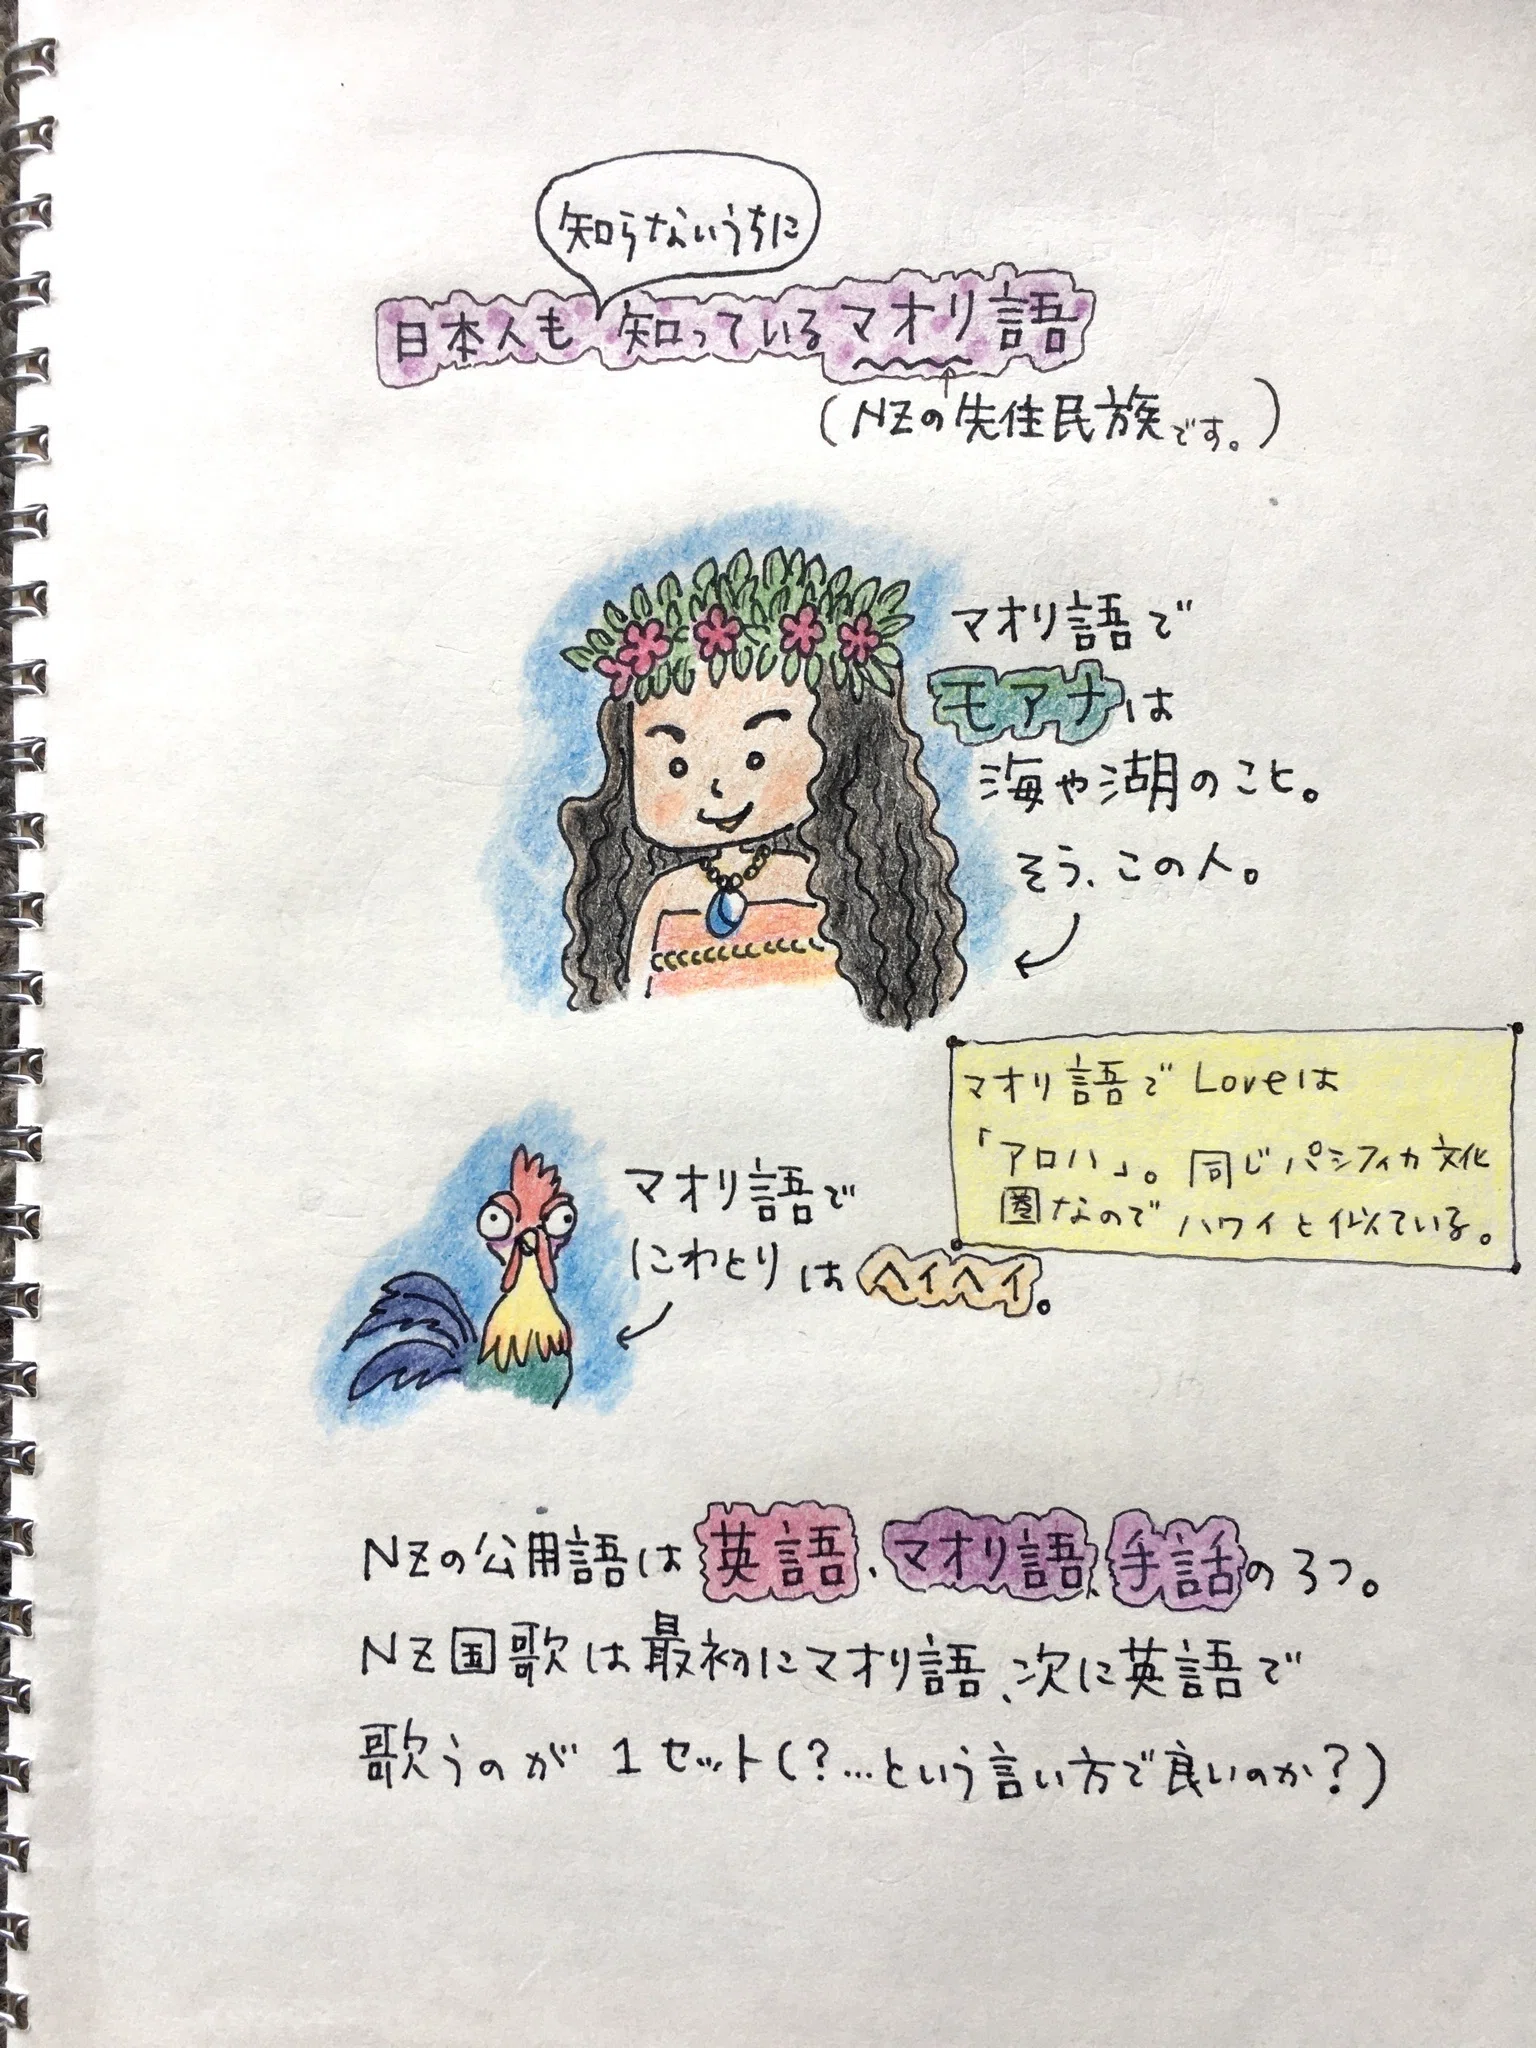 知らないうちに
日本人も知っているマオリ語
(NZの先住民族です。)
マオリ語で
モアナは
海や湖のこと。
そう、この人。
マオリ語でLoveは
「アロハ」。同じパシフィカ文化
圏なのでハワイと似ている。
マオリ語で
にわとりはヘイヘイ。
NZの公用語は英語、マオリ語、手話の3つ。
NZ国歌は最初にマオリ語、次に英語で
歌うのが1セット(?...という言い方で良いのか?)